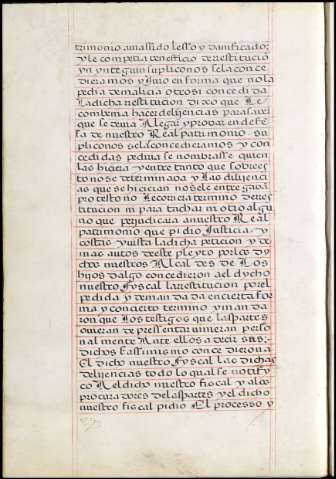 trimonio auia sido lesso y danificado:
y le competia beneficio de restitucio
yn yntegrun suplico nos se la conce
dieramos y Juro en forma que no la
pedia de malicia otrosi concedida
La dicha Restitucion dixo que Le
combenia hacer deligencias para saver
que se devia Alegar y provar en defen
sa de nuestro Real patrimonio su
plico nos se la concedieramos y con
cedidas pediria se nombrasse quien
las hiciera y entre tanto que sobre es
to no se determinava y Las diligenci
as que se hicieran no se le entregava
protesto no Le corriera termino de res
titucion ni para tachar ni otro algu
no que perjudicara a nuestro Real
patrimonio que pidio Justicia y
costas y vista la dicha peticion y de
mas autos de este pleyto por los dy
chos nuestros Alcaldes de Los
hijos dalgo concedieron al dycho
nuestro fyscal la restitucion por el
pedida y demandada en cierta for
ma y con cierto termino y manda
ron que Los testigos que las partes
ovieran de pressentar vinieran perso
nalmente Ante ellos a decir sus
dichos E assimismo concedieron a
El dicho nuestro fyscal Las dichas
deligencias todo lo qual se notify
co A el dicho nuestro fiscal y a los
procuradores de las partes y el dicho
nuestro fiscal pidio El processo y